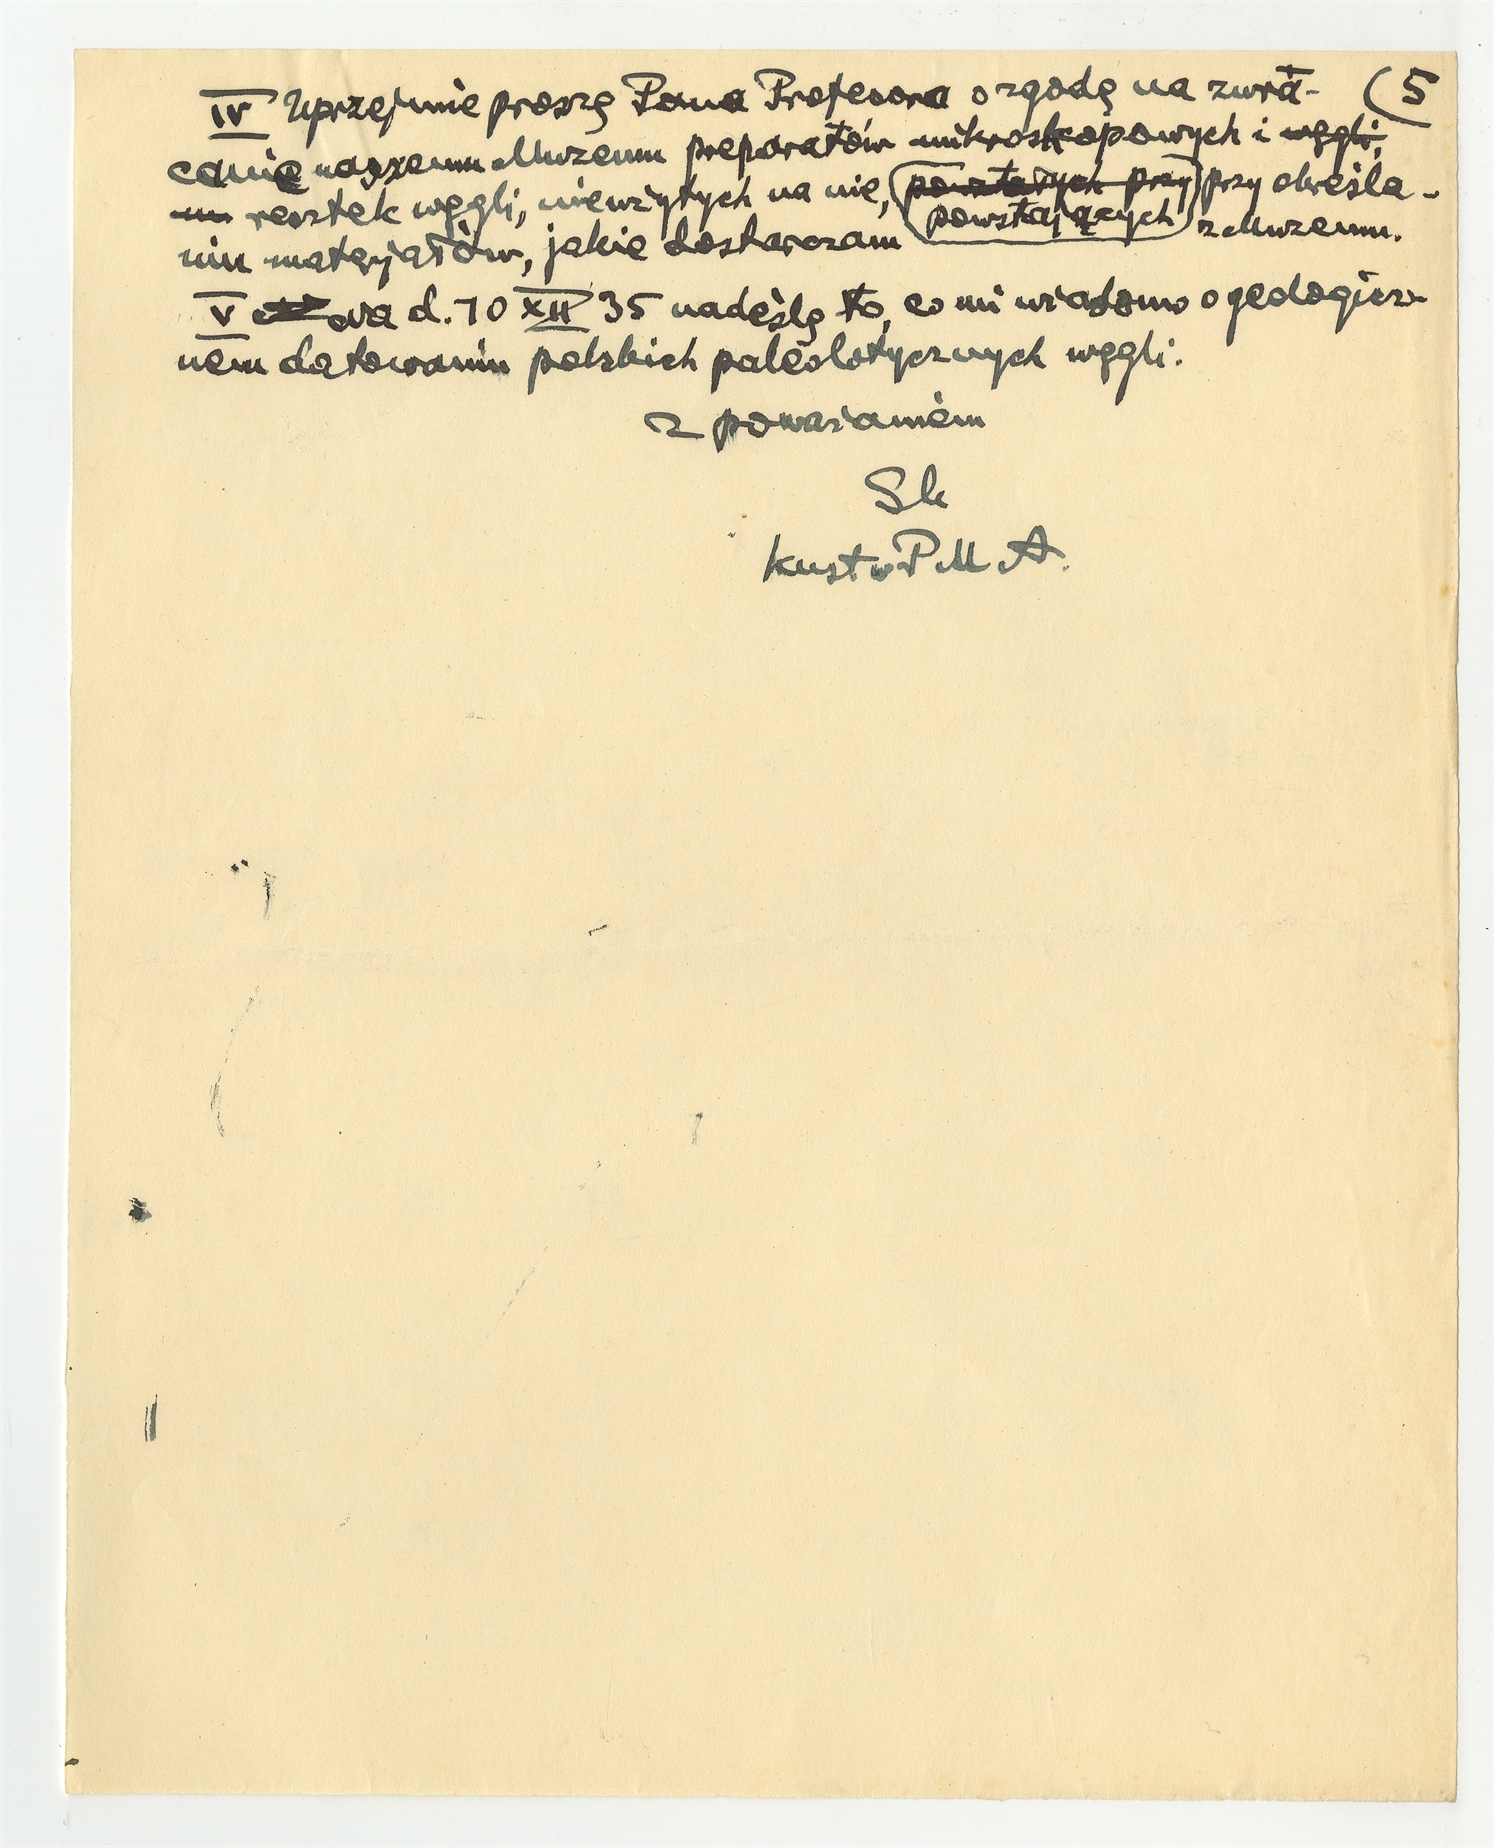 IV Uprzejmie proszę Pana Profesora o zgodę na zwra- (5
canie naszemu Muzeum preparatów mikroskopowych i węgli,
resztek węgli, niewzytych na nie, powstałych przy przy określa-
powstających
niu materjałów, jakie dostarczam z Muzeum.
V na d. 10 XII 35 nadeślę to, co mi wiadomo o geologicz-
nem datowaniu polskich paleolotycznych węgli.
z poważaniem
SK
kustosz PMA.